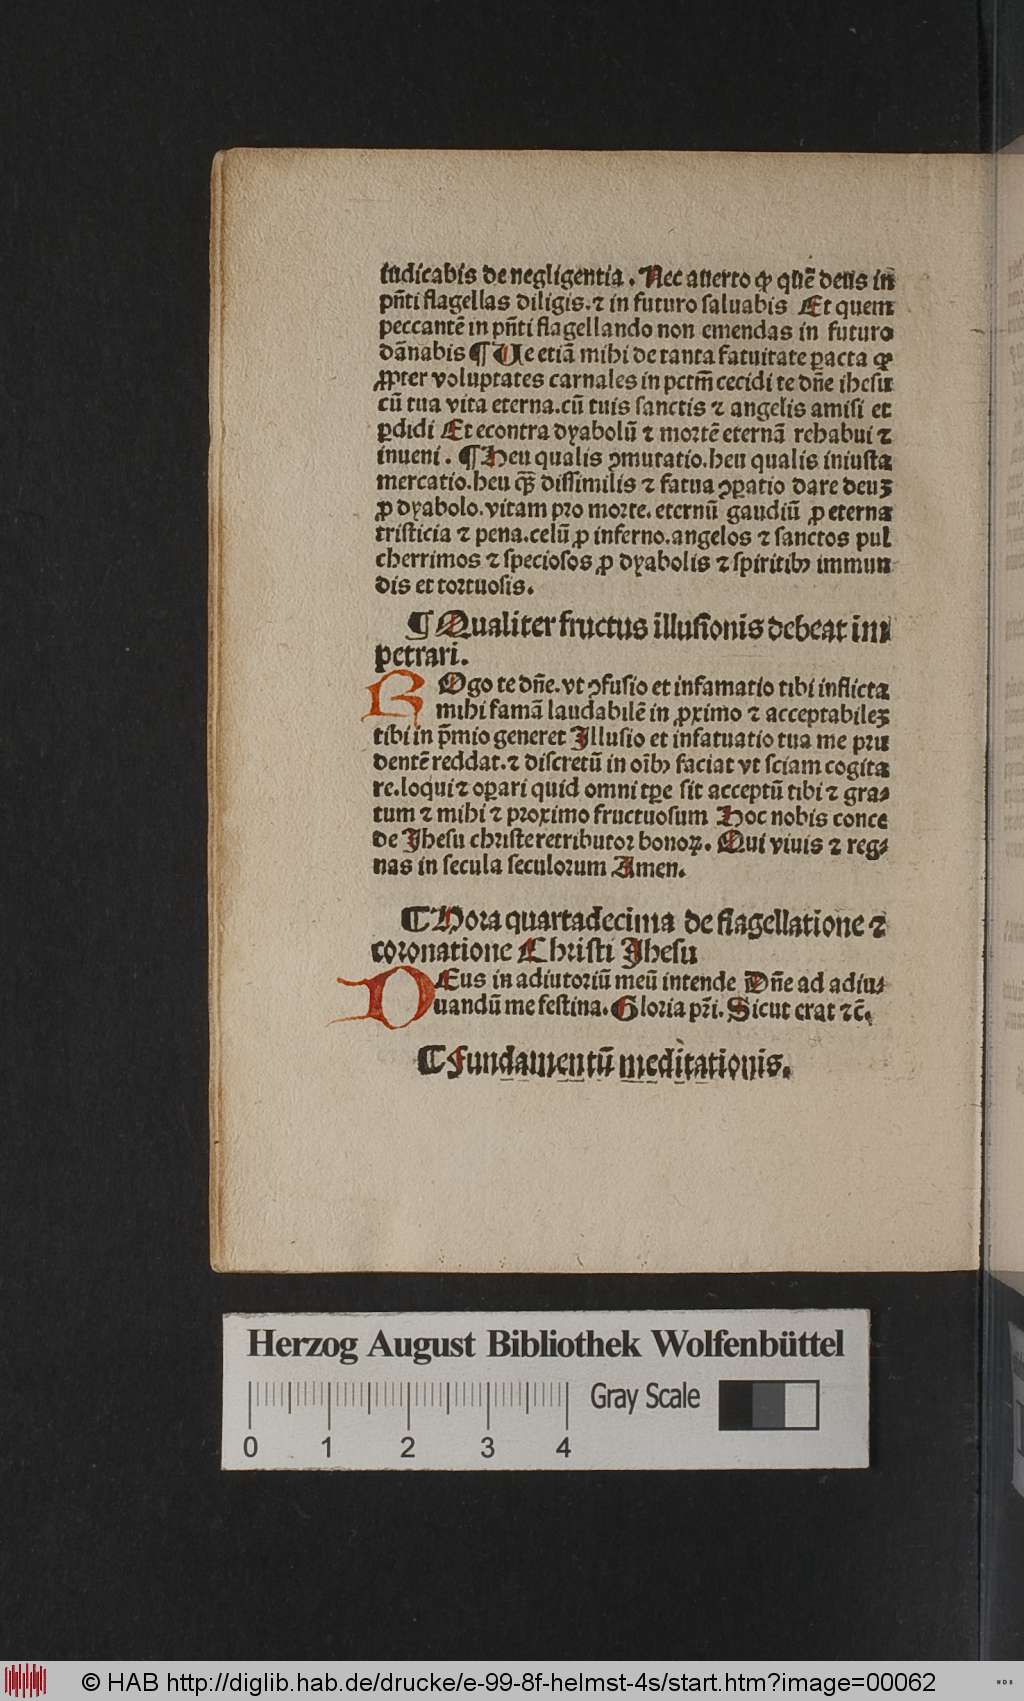 iudicabis de negligentia. Nec auerto ꝙ quē deus in
pn̄ti flagellas diligis. ⁊ in futuro saluabis Et quem
peccantē in pn̄ti flagellando non emendas in futuro
dānabis ¶ Ue etiā mihi de tanta fatuitate ꝑacta ꝙ
ꝓpter voluptates carnales in pctm̄ cecidi te dn̄e ihesu
cū tua vita eterna. cū tuis sanctis ⁊ angelis amisi et
ꝑdidi Et econtra dyabolū ⁊ mortē eternā rehabui ⁊
inueni. ¶ Heu qualis ꝯmutatio. heu qualis iniusta
mercatio. heu qꝫ̄ dissimilis ⁊ fatua ꝯꝑatio dare deuꝫ
ꝓ dyabolo. vitam pro morte. eternū gaudiū ꝓ eterna
tristicia ⁊ pena. celū ꝓ inferno. angelos ⁊ sanctos pul
cherrimos ⁊ speciosos ꝓ dyabolis ⁊ spiritibꝰ immun
dis et tortuosis.
¶ Qualiter fructus illusionis debeat im
petrari.
ROgo te dn̄e. vt ꝯfusio et infamatio tibi inflicta
mihi famā laudabilē in ꝓximo ⁊ acceptabileꝫ
tibi in p̄mio generet Illusio et infatuatio tua me pru
dentē reddat. ⁊ discretū in oībꝰ faciat vt sciam cogita
re. loqui ⁊ oꝑari quid omni tꝑe sit acceptū tibi ⁊ gra⸗
tum ⁊ mihi ⁊ proximo fructuosum Hoc nobis conce
de Jhesu christe retributor bonoꝝ. Qui viuis ⁊ reg⸗
nas in secula seculorum Amen.
¶ Hora quartadecima de flagellatione ⁊
coronatione Christi Jhesu
DEus in adiutoriū meū intende Dn̄e ad adiu⸗
uandū me festina. Gloria pr̄i. Sicut erat ⁊c̄.
¶ Fundamentū meditationis.
Herzog August Bibliothek Wolfenbüttel
Gray Scale
0 1 2 3 4
© HAB http://diglib.hab.de/drucke/e-99-8f-helmst-4s/start.htm?image=00062